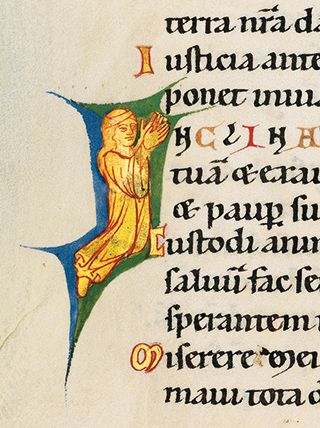 terra nr̄a da
Iusticia ante
ponet in uia
INCLINA
tuā & exau
& paup̲ su
Custodi anim
saluū fac se
sperantem
Miserere mei
maui tota d